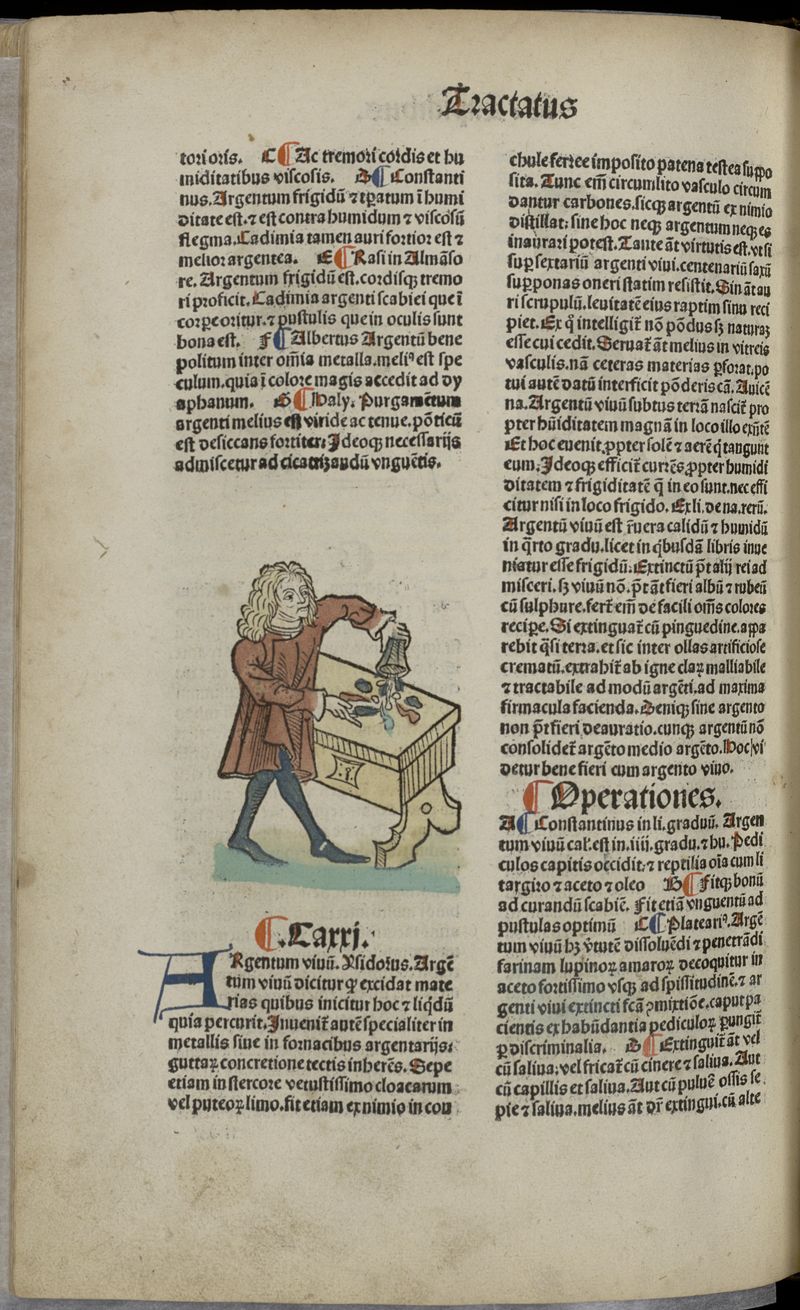 Tractatus
tori oris. C ¶ Ac tremori cordis et hu
miditatibus viscosis. D ¶ Constanti
nus. Argentum frigidū ⁊ tꝑatum ī humi
ditate est. ⁊ est contra humidum ⁊ viscosū
flegma. Cadimia tamen auri fortior est ⁊
melior argentea. E ¶ Rasi in Almāso
re. Argentum frigidū est. cordisqꝫ tremo
ri proficit. Cadimia argenti scabiei que ī
corpe oritur. ⁊ pustulis que in oculis sunt
bona est. F ¶ Albertus Argentū bene
politum inter om̄ia metalla. meliꝰ est spe
culum. quia ī colore magis accedit ad dy
aphanum. G ¶ Haly. Purgamētum
argenti melius est viride ac tenue. pōticū
est desiccans fortiter. Ideoqꝫ necessarijs
admiscetur ad cicatrizandū vnguētis.
¶ .Ca.xxj.
ARgentum viuū. Ysidorus. Argē
tum viuū dicitur ꝙ excidat mate
rias quibus inicitur hoc ⁊ liqͥdū
quia percurit. Inuenit᷑ autē specialiter in
metallis siue in fornacibus argentarijs:
guttaꝝ concretione tectis inherēs. Sepe
etiam in stercore vetustissimo cloacarum
vel puteoꝝ limo. fit etiam ex nimio in cou
chule ferree imposito patena testea suppo
sita. Tunc em̄ circumlito vasculo circum
dantur carbones. sicqꝫ argentū ex nimio
distillat: sine hoc neqꝫ argentum neqꝫ es
inaurari potest. Tante āt virtutis est. vt si
suꝑ sextariū argenti viui. centenariū saxū
suꝑponas oneri statim resistit. Sin āt au
ri scrupulū. leuitatē eius raptim sinu reci
piet. Ex qͦ intelligit᷑ nō pōdus sꝫ naturaꝫ
esse cui cedit. Seruat᷑ āt melius in vitreis
vasculis. nā ceteras materias ꝑforat. po
tui autē datū interficit pōderis cā. Auicē
na. Argentū viuū subtus terrā nascit᷑ pro
pter hūiditatem magnā in loco illo exn̄tē
Et hoc euenit ꝓpter solē ⁊ aerē q̄ tangunt
eum. Ideoqꝫ efficit᷑ currēs ꝓpter humidi
ditatem ⁊ frigiditatē q̄ in eo sunt. nec effi
citur nisi in loco frigido. Ex li. de na. rerū.
Argentū viuū est r̄uera calidū ⁊ humidū
in qͣrto gradu. licet in qͥbusdā libris inue
niatur esse frigidū. Extinctū pt̄ alij rei ad
misceri. sꝫ viuū nō. pt̄ āt fieri albū ⁊ rubeū
cū sulphure. fert᷑ em̄ de facili om̄s colores
recipe. Si extinguat᷑ cū pinguedine. appa
rebit qͣsi terra. et sic inter ollas artificiose
crematū. extrahit᷑ ab igne claꝝ malliabile
⁊ tractabile ad modū argēti. ad maxima
firmacula facienda. Deniqꝫ sine argento
non pt̄ fieri deauratio. cunqꝫ argentū nō
consolidet᷑ argēto medio argēto. Hoc vi
detur bene fieri cum argento viuo.
¶ Operationes.
A ¶ Constantinus in li. graduū. Argen
tum viuū cal. est in .iiij. gradu. ⁊ hu. Pedi
culos capitis occidit. ⁊ reptilia oīa cum li
targiro ⁊ aceto ⁊ oleo B ¶ Fitqꝫ bonū
ad curandū scabiē. Fit etiā vnguentū ad
pustulas optimū C ¶ Plateariꝰ. Argē
tum viuū hꝫ v̄tutē dissoluēdi ⁊ penetrādi
farinam lupinoꝝ amaroꝝ decoquitur in
aceto fortissimo vsqꝫ ad spissitudinē. ⁊ ar
genti viui extincti fcā ꝯmixtiōe. caput pa
cientis ex habūdantia pediculoꝝ ꝑungit᷑
ꝑ discriminalia. D ¶ Extinguit᷑ āt vel
cū saliua: vel fricat᷑ cū cinere ⁊ saliua. Aut
cū capillis et saliua. Aut cū puluē ossis se
pie ⁊ saliua. melius āt dr̄ extingui. cū alte